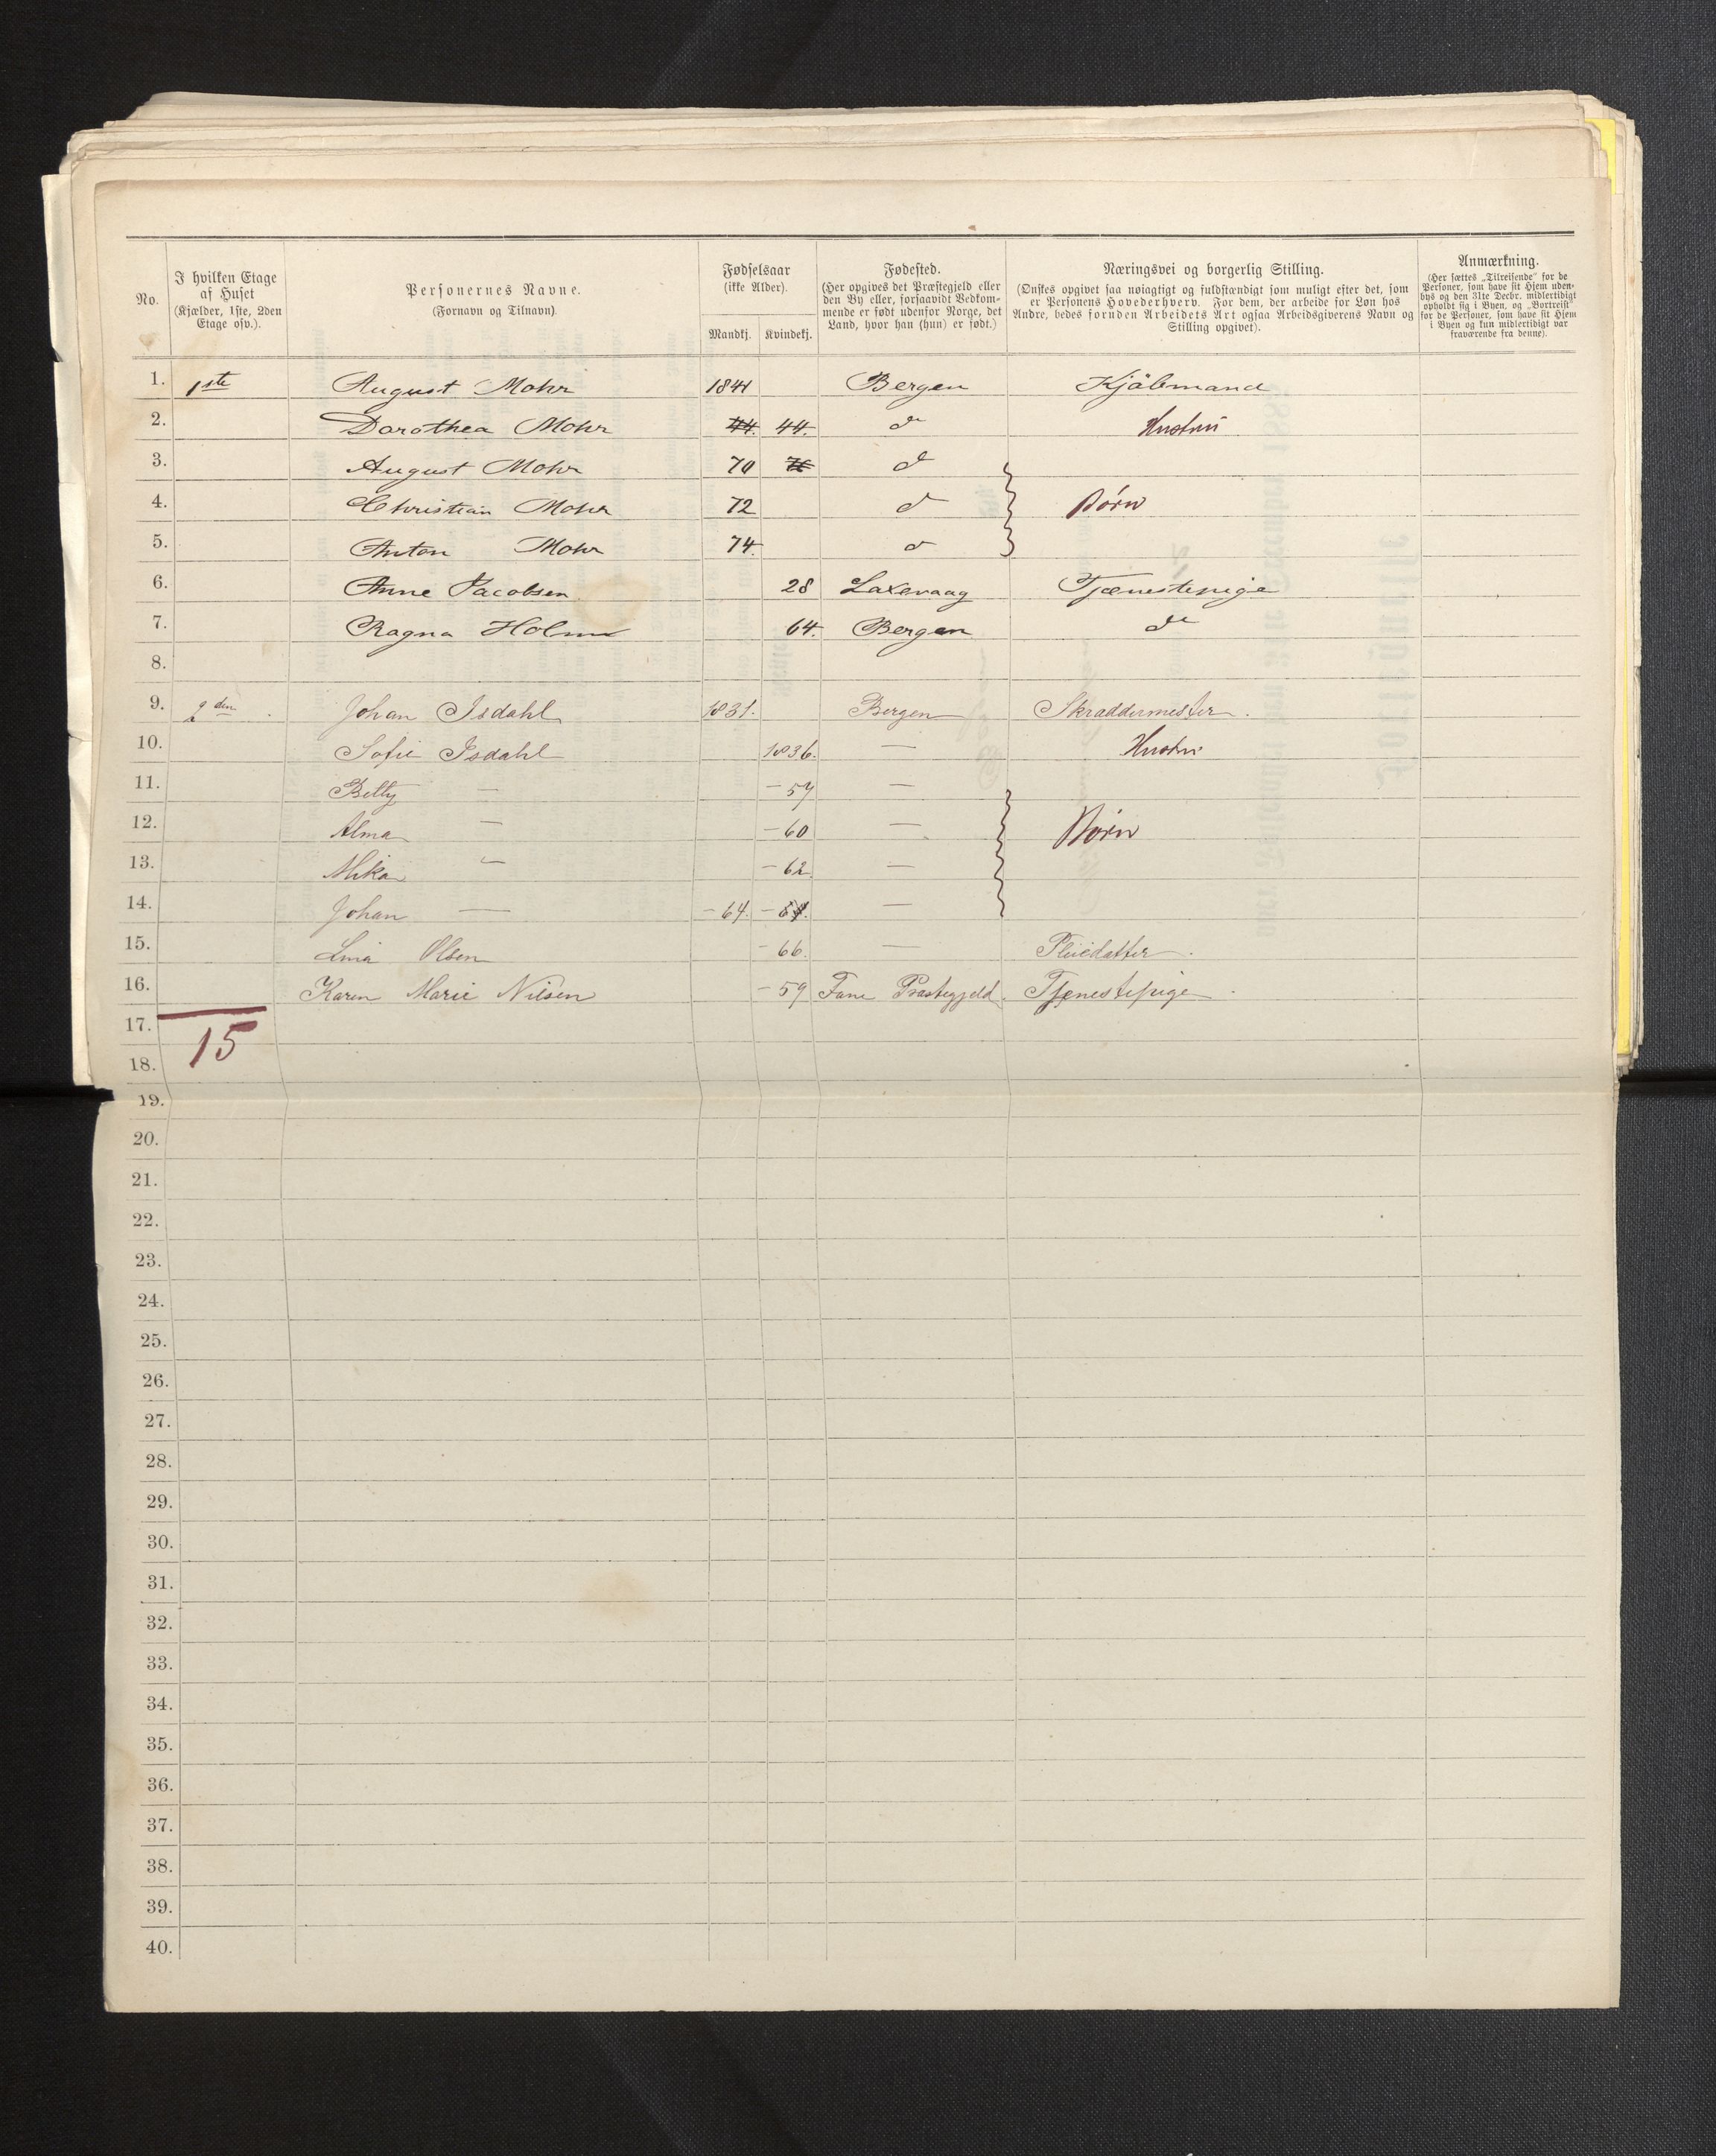 No.
I hvilken Etage af Huset (Kjælder, 1ste, 2den Etage osv.).
Personernes Navne. (Fornavn og Tilnavn).
Fødselsaar (ikke Alder).
Mandkj. Kvindekj.
Fødested. (Her opgives det Præstegjeld eller den By eller, forsaavidt Vedkommende er født udenfor Norge, det Land, hvor han (hun) er født.)
Næringsvei og borgerlig Stilling. (Ønskes opgivet saa nøiagtigt og fuldstændigt som muligt efter det, som er Personens Hovederhverv. For dem, der arbeide for Løn hos Andre, bedes foruden Arbeidets Art ogsaa Arbeidsgiverens Navn og Stilling opgivet).
Anmærkning. (Her sættes „Tilreisende“ for de Personer, som have sit Hjem udenbys og den 31te Decbr. midlertidigt opholdt sig i Byen, og „Bortreist“ for de Personer, som have sit Hjem i Byen og kun midlertidigt var fraværende fra denne).
1. 1ste August Mohr 1841 Bergen Kjöbmand
2. Dorothea Mohr 44. 44. do Hustru
3. August Mohr 70 70 d
4. Christian Mohr 72 d Børn
5. Anton Mohr 74. d
6. Anne Jacobsen 28 Laxevaag Tjenestepige
7. Ragna Holm 64. Bergen do
8.
9. 2den Johan Isdahl 1831. Bergen Skraddermester.
10. Sofie Isdahl 1836. — Hustru
11. Betty — — 59 —
12. Alma — — 60 — Børn
13. Mika — — 62. —
14. Johan — — 64. —
15. Lina Olsen — 66. — Pleiedatter.
16. Karen Marie Nilsen — 59 Fane Præstegjeld. Tjenestepige.
17.
15
18.
19.
20.
21.
22.
23.
24.
25.
26.
27.
28.
29.
30.
31.
32.
33.
34.
35.
36.
37.
38.
39.
40.